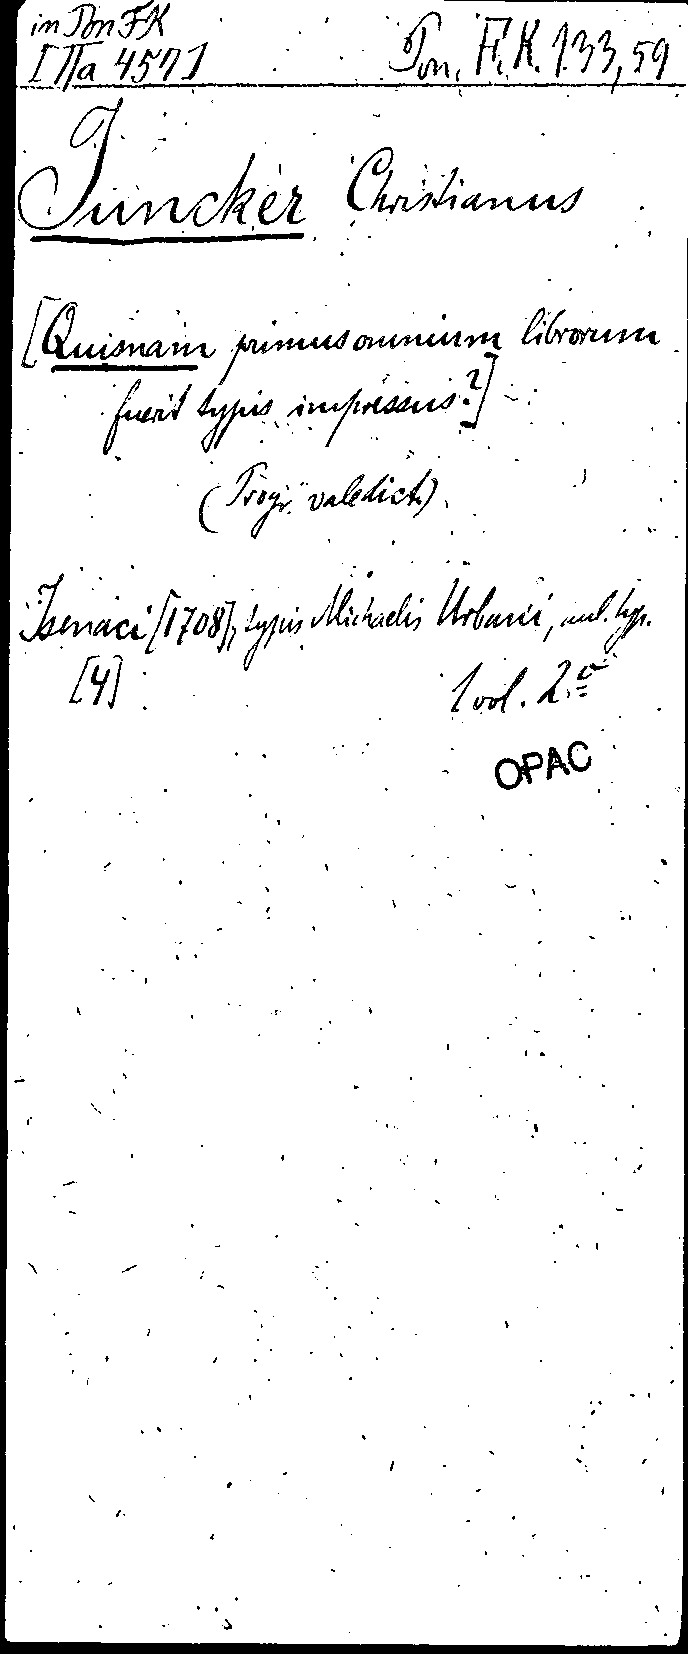 in Pon FK
I Πa 4571
Pon. F. K. 133,59
Juncker Christianus
[Quisnam primus omnium librorum
fuerit typis impressus?]
(Progr. valedict.)
Isenaci [1708], typis Michaelis Urbani, aul. typ.
[4]
1 vol. 2.º
OPAC